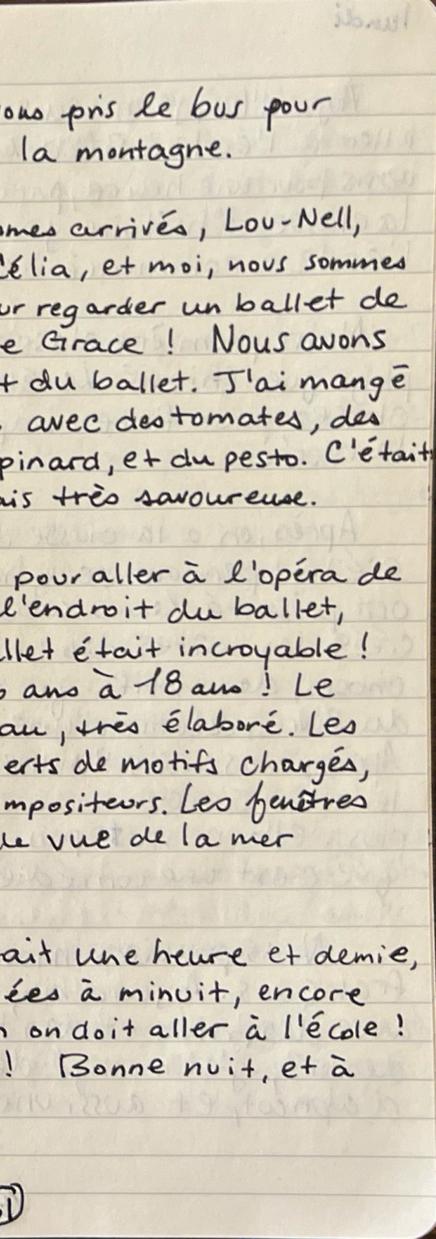 ons pris le bus pour
la montagne.
mes arrivés, Lou-Nell,
Célia, et moi, nous sommes
ur regarder un ballet de
e Grace ! Nous avons
t du ballet. J'ai mangé
avec des tomates, des
pinard, et du pesto. C'était
is très savoureuse.
pour aller à l'opéra de
l'endroit du ballet,
llet était incroyable !
ans à 18 ans ! Le
au, très élaboré. Les
erts de motifs chargés,
mpositeurs. Les fenêtres
vue de la mer
ait une heure et demie,
ées à minuit, encore
on doit aller à l'école !
! Bonne nuit, et à